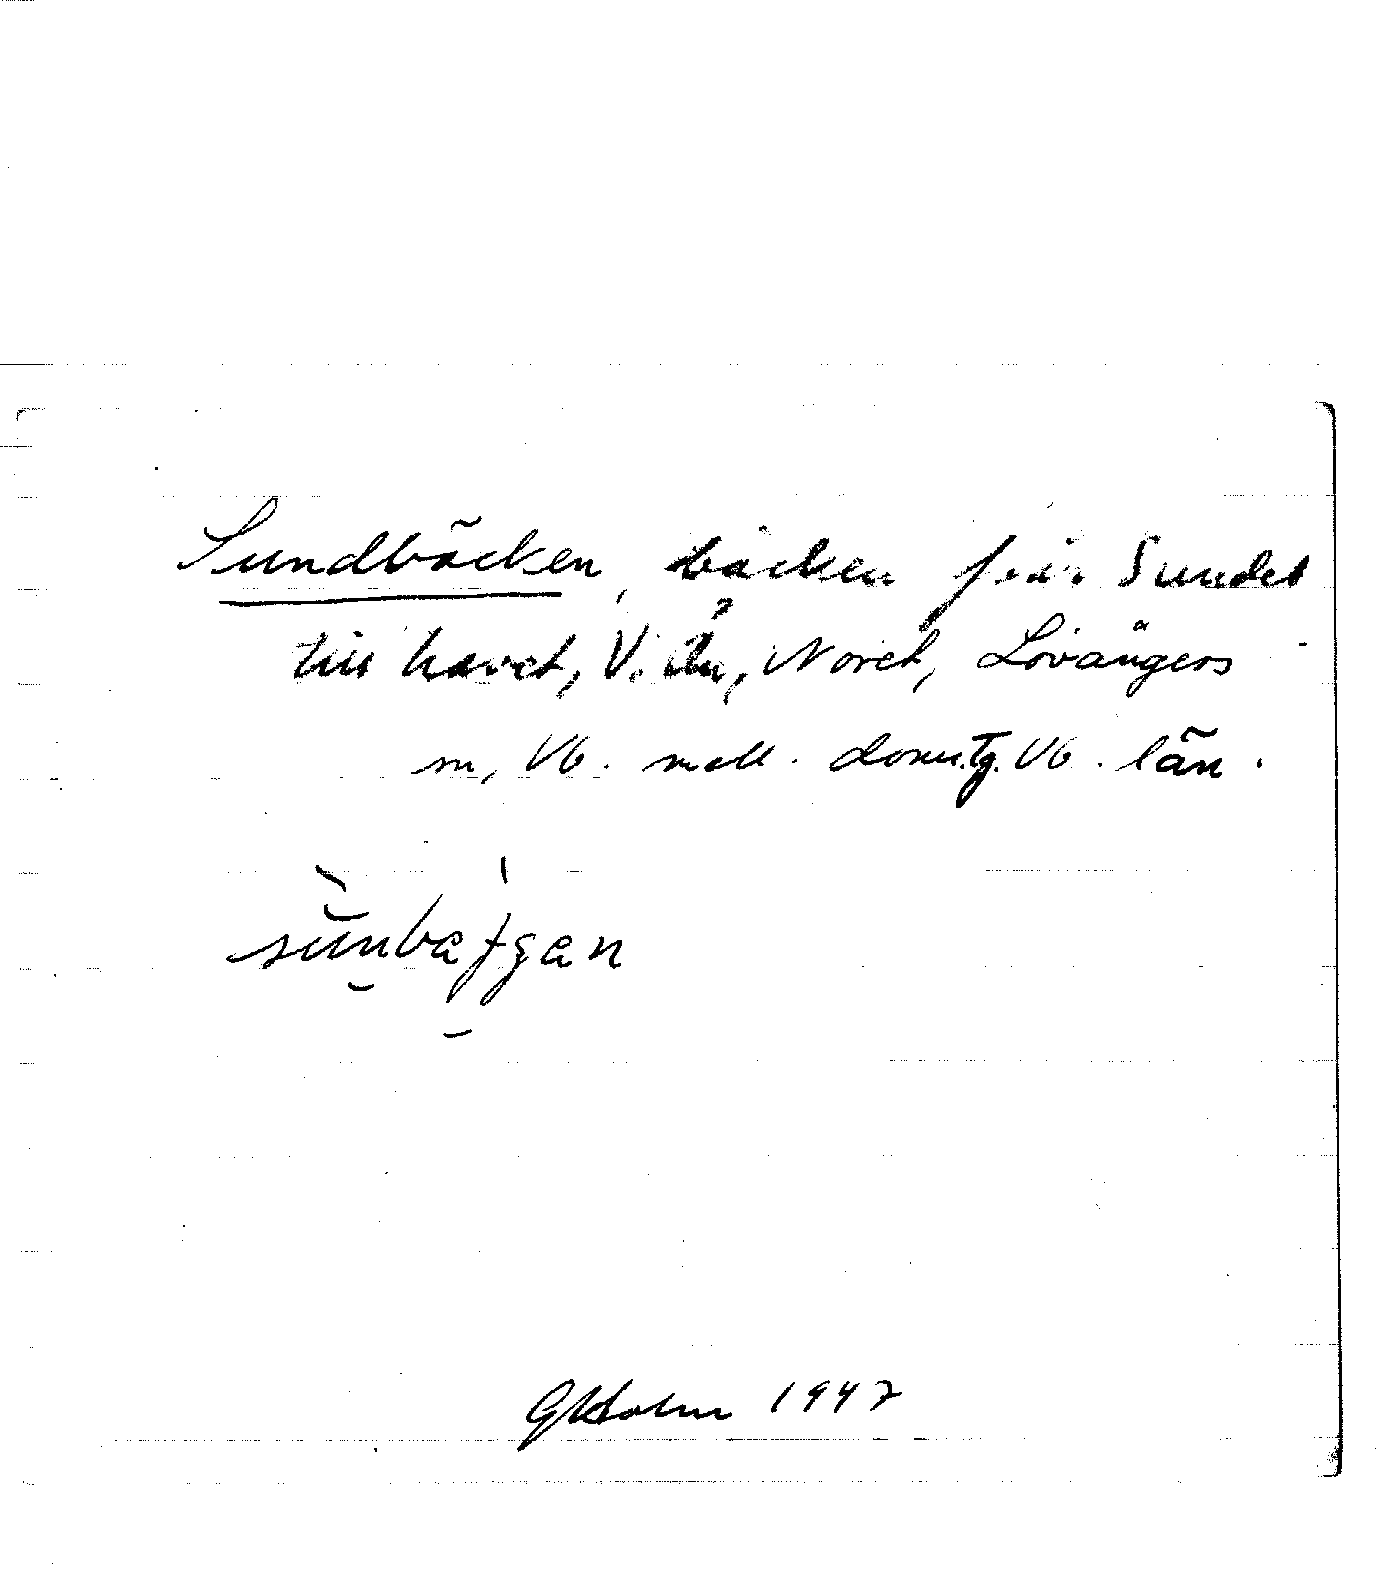 Sundbäcken, bäcken från Sundet
till havet, V. ån, Noret, Lövångers
sn, Vb. mell. doms.tg. Vb. län.
G Holm 1947